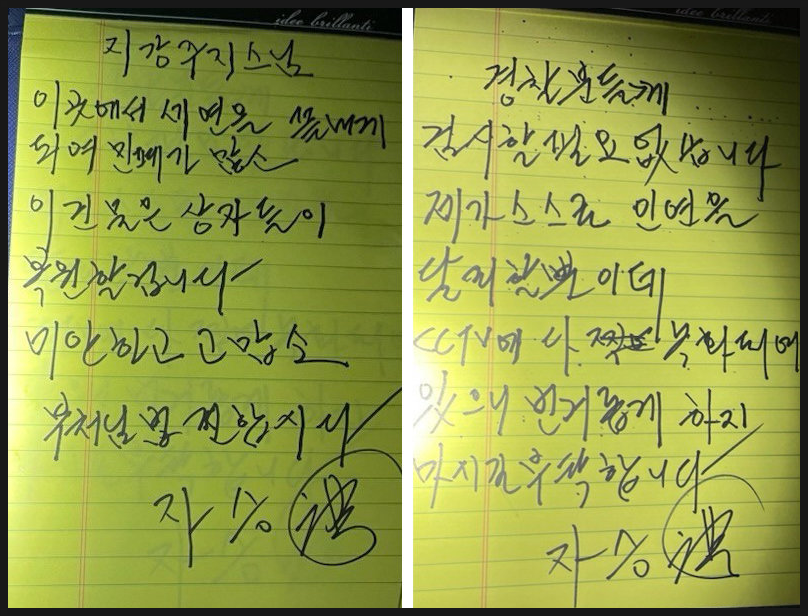 idee brillanti
지강주지스님
이곳에서 세연을 끝내게
되어 민폐가 많소
이 건물은 상좌들이
복원할겁니다
미안하고 고맙소
부처님법 전합시다
자승
idee brillanti
경찰분들께
검시할 필요 없습니다
제가 스스로 인연을
달리할뿐이데
CCTV에 다 녹화되어
있으니 번거롭게 하지
마시길 부탁합니다
자승